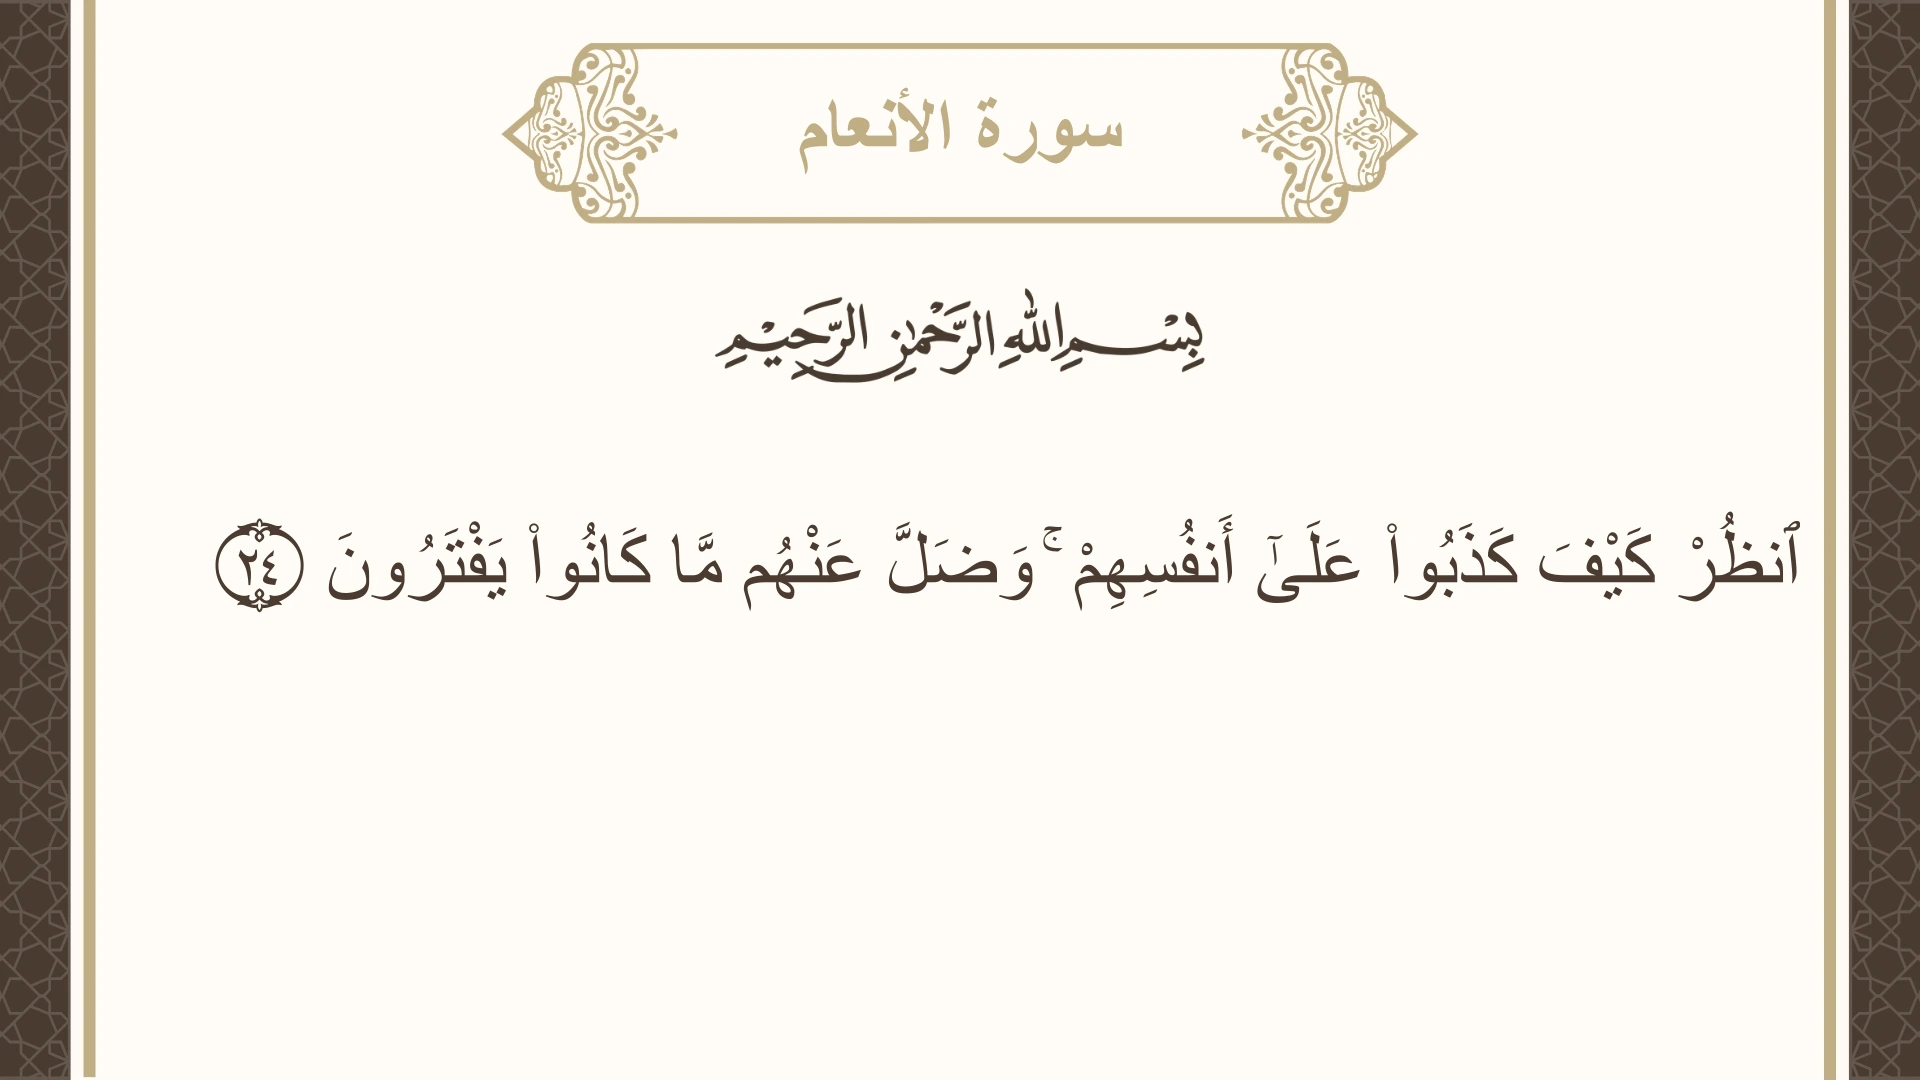 سورة الأنعام
بِسْمِ اللهِ الرَّحْمٰنِ الرَّحِيْمِ
ٱنظُرْ كَيْفَ كَذَبُوا۟ عَلَىٰٓ أَنفُسِهِمْ ۚ وَضَلَّ عَنْهُم مَّا كَانُوا۟ يَفْتَرُونَ ٢٤